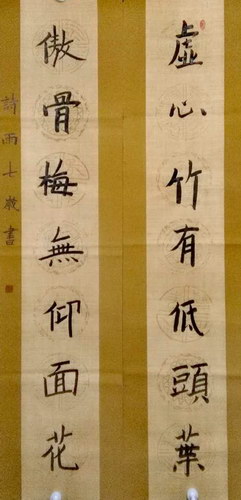 虛心竹有低頭葉
傲骨梅無仰面花
詩雨七歲書